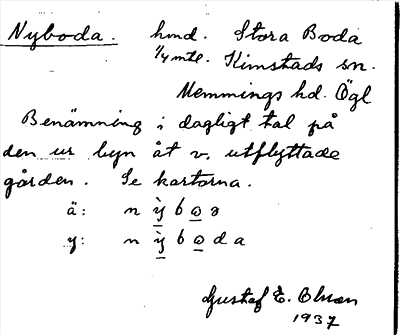 Nyboda. hmd. Stora Boda
1/4 mtl. Kimstads sn.
Memmings hd. Ögl
Benämning i dagligt tal på
den ur byn åt v. utflyttade
gården. Se kartorna.
ä: n ỳ b o
y: n ỳ b o d a
Gustaf E. Olsson
1937